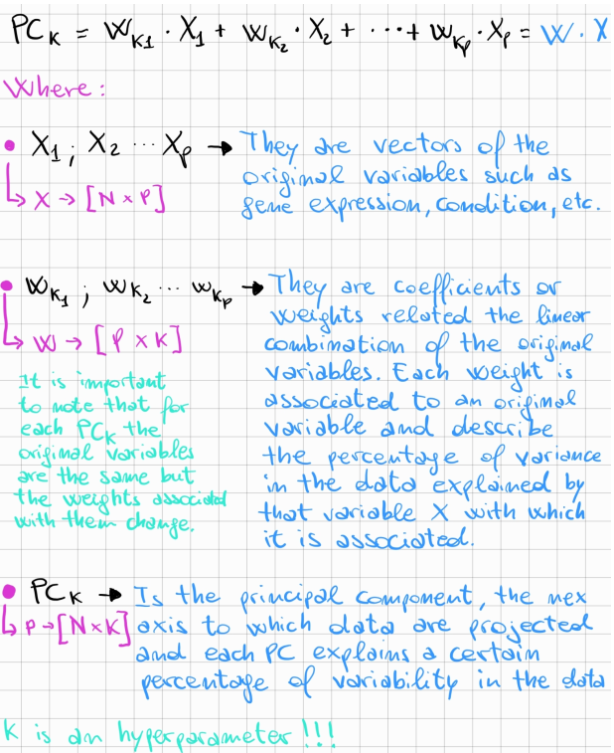 PCₖ = Wₖ₁ · X₁ + Wₖ₂ · X₂ + ··· + Wₖₚ · Xₚ = W · X
Where :
• X₁ ; X₂ ··· Xₚ → They are vectors of the
original variables such as
↳ X → [N x P]
gene expression, condition, etc.
• Wₖ₁ ; Wₖ₂ ··· Wₖₚ → They are coefficients or
weights related the linear
↳ W → [P x K]
combination of the original
variables. Each weight is
associated to an original
variable and describe
the percentage of variance
in the data explained by
that variable X with which
it is associated.
It is important
to note that for
each PCₖ the
original variables
are the same but
the weights associated
with them change.
• PCₖ → Is the principal component, the nex
↳ P → [N x K] axis to which data are projected
and each PC explains a certain
percentage of variability in the data
K is an hyperparameter !!!